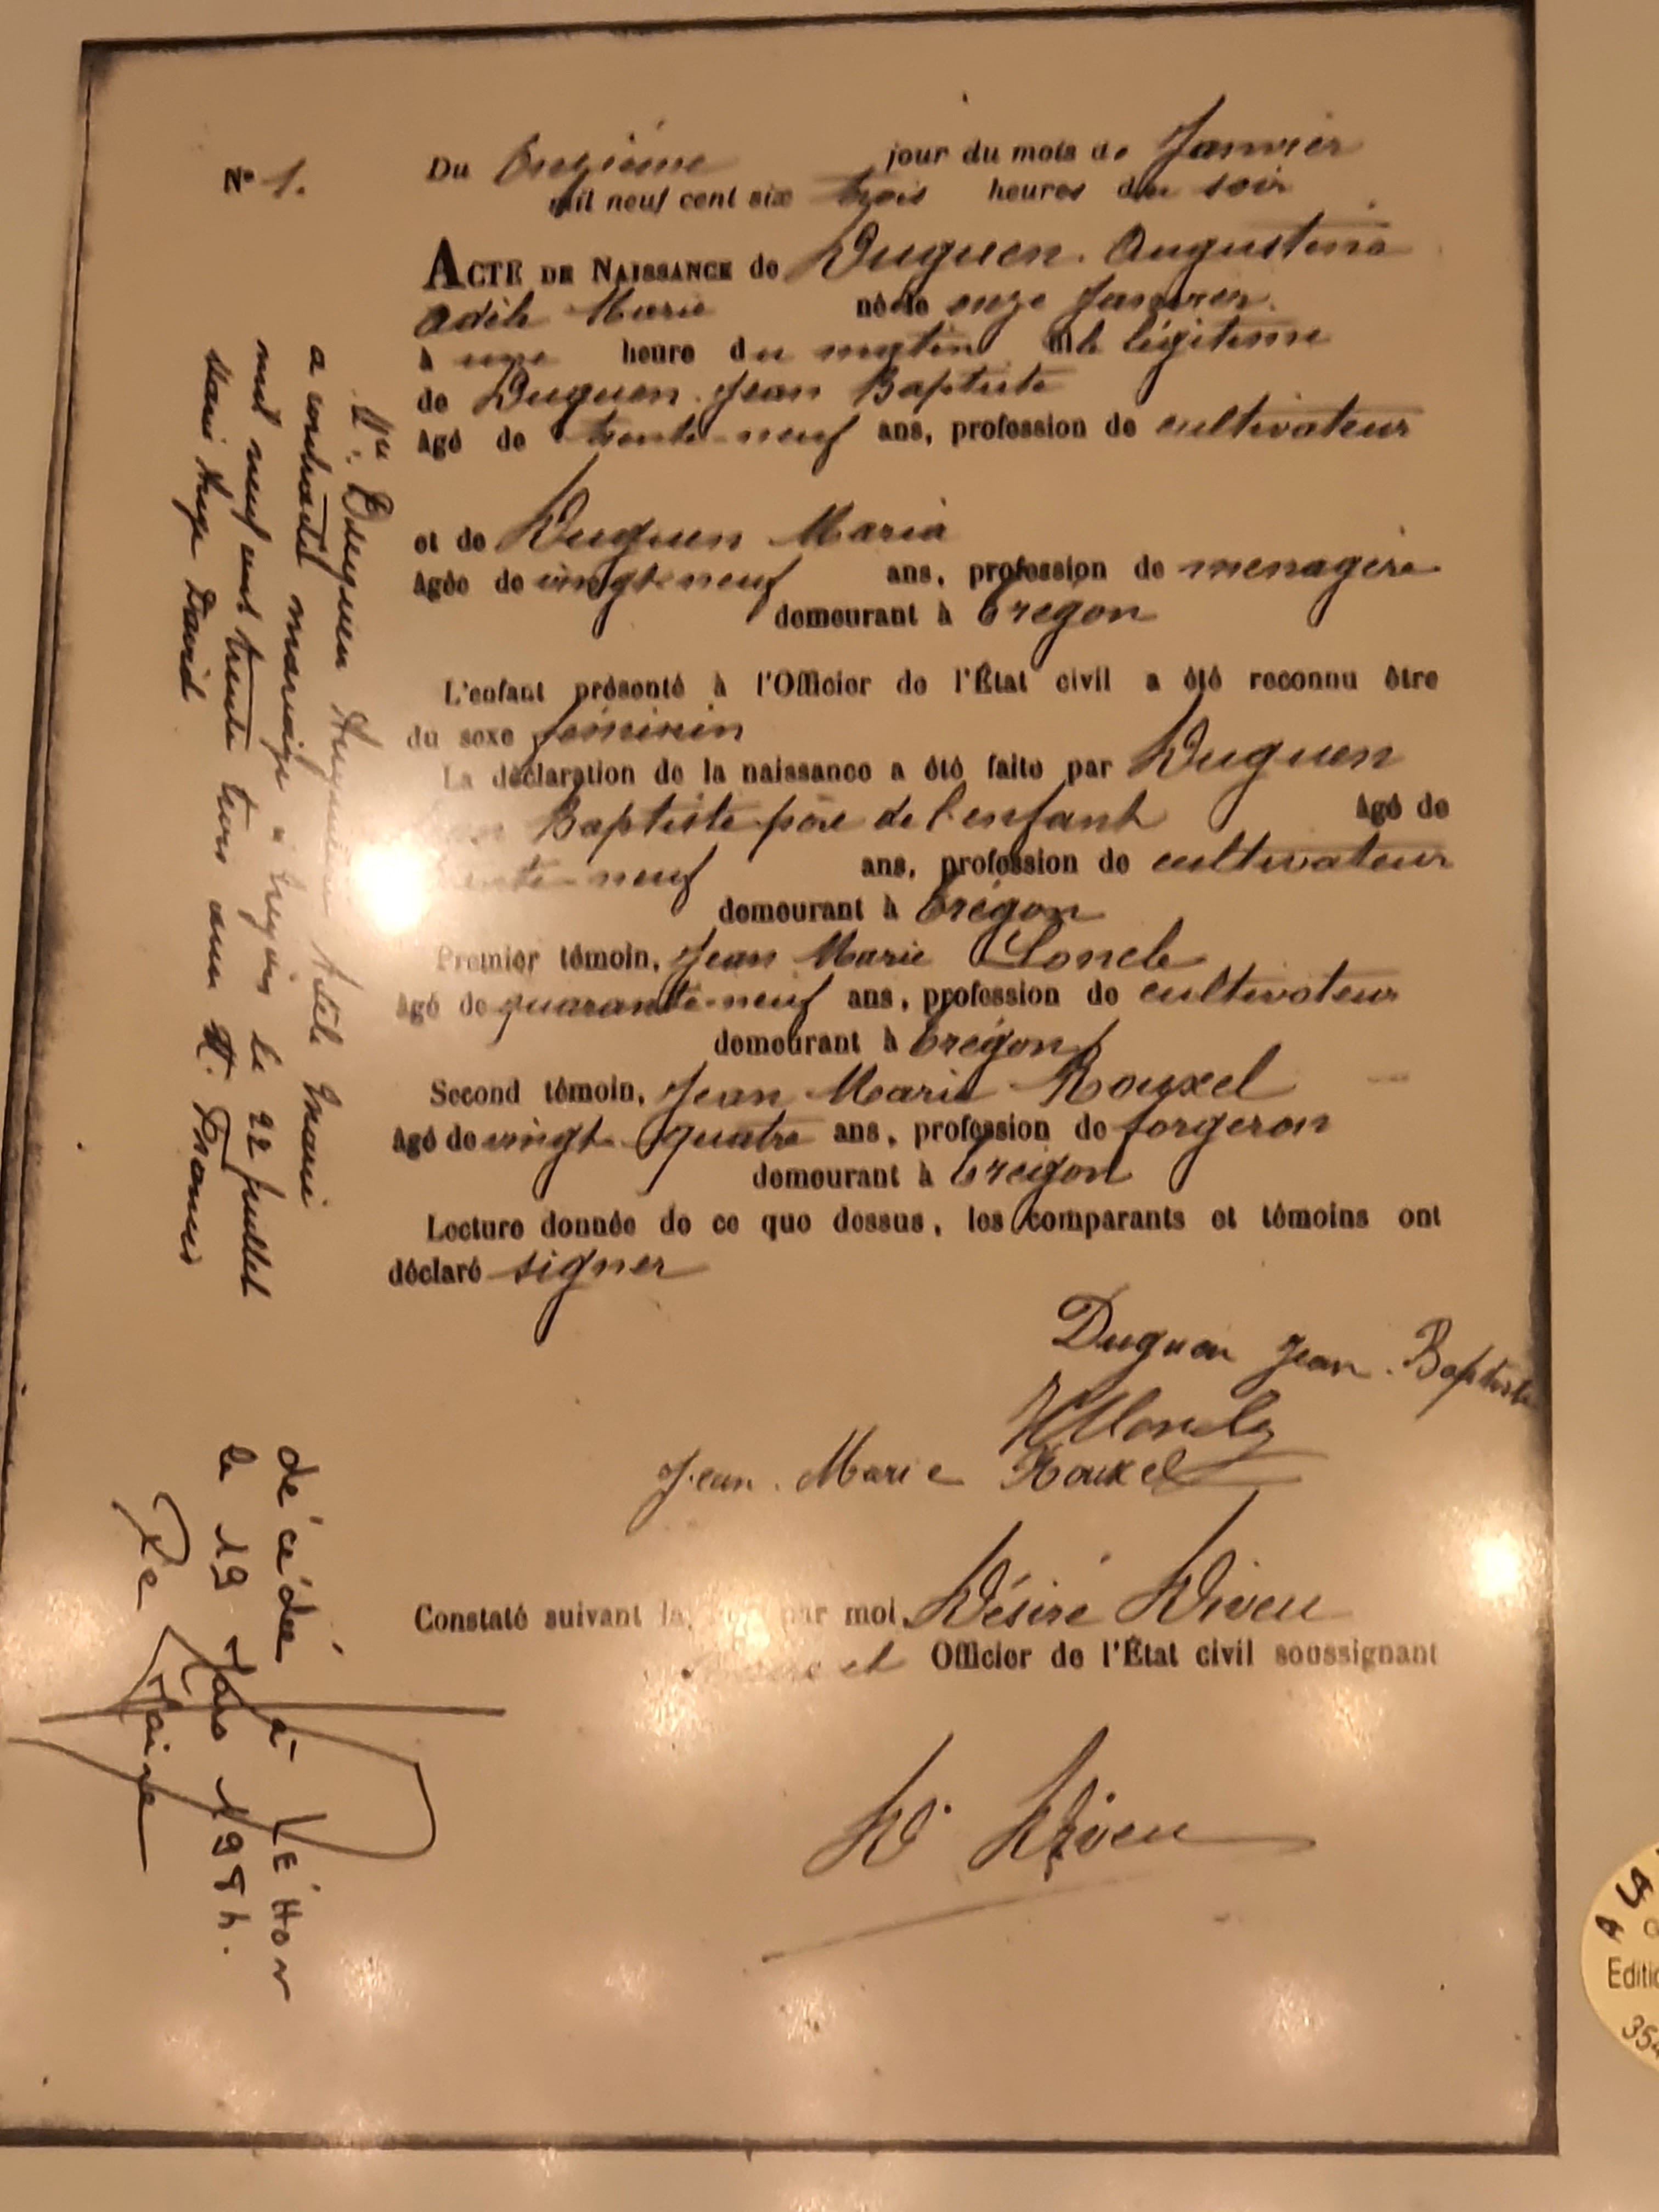 N° 1.
Du Onzième jour du mois de Janvier
mil neuf cent six trois heures du soir
ACTE DE NAISSANCE de Duguen Augustine
Adèle Marie née le onze Janvier
à une heure du matin fille légitime
de Duguen Jean Baptiste
âgé de trente-neuf ans, profession de cultivateur
et de Duguen Maria
âgée de vingt-neuf ans, profession de ménagère
demeurant à Trégon
L'enfant présenté à l'Officier de l'État civil a été reconnu être
du sexe féminin
La déclaration de la naissance a été faite par Duguen
Baptiste père de l'enfant âgé de
trente-neuf ans, profession de cultivateur
demeurant à Trégon
Premier témoin, Jean Marie Loncle
âgé de quarante-neuf ans, profession de cultivateur
demeurant à Trégon
Second témoin, Jean Marie Rouxel
âgé de vingt-quatre ans, profession de forgeron
demeurant à Trégon
Lecture donnée de ce que dessus, les comparants et témoins ont
déclaré signer
Duguen Jean Baptiste
Jean Marie Rouxel
Constaté suivant la par moi, Désiré Diveu
Officier de l'État civil soussignant
D. Diveu
Duguen Augustine Adèle Marie
a contracté mariage à Trégon le 22 juillet
mil neuf cent trente trois avec M. Francis
Marie Ange David
décédée à LÉHON
le 19 Mars 1984.
Le Maire
A LA
Editi
354